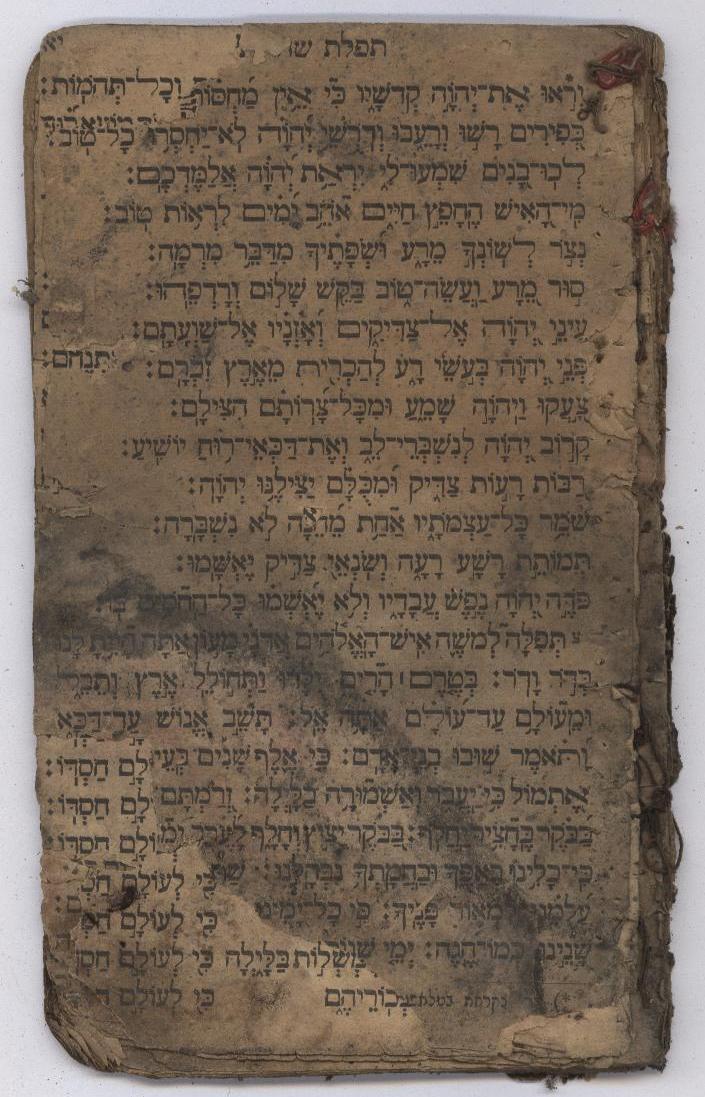 תפלת
יְראוּ אֶת־יְהוָה קְדֹשָׁיו כִּי אֵין מַחְסוֹר וְכָל־תְּהֹמוֹת:
כְּפִירִים רָשׁוּ וְרָעֵבוּ וְדֹרְשֵׁי יְהוָה לֹא־יַחְסְרוּ כָל־טוֹב:
לְכוּ־בָנִים שִׁמְעוּ־לִי יִרְאַת יְהוָה אֲלַמֶּדְכֶם:
מִי־הָאִישׁ הֶחָפֵץ חַיִּים אֹהֵב יָמִים לִרְאוֹת טוֹב:
נְצֹר לְשׁוֹנְךָ מֵרָע וּשְׂפָתֶיךָ מִדַּבֵּר מִרְמָה:
סוּר מֵרָע וַעֲשֵׂה־טוֹב בַּקֵּשׁ שָׁלוֹם וְרָדְפֵהוּ:
עֵינֵי יְהוָה אֶל־צַדִּיקִים וְאָזְנָיו אֶל־שַׁוְעָתָם:
פְּנֵי יְהוָה בְּעֹשֵׂי רָע לְהַכְרִית מֵאֶרֶץ זִכְרָם:
צָעֲקוּ וַיהוָה שָׁמֵעַ וּמִכָּל־צָרוֹתָם הִצִּילָם:
קָרוֹב יְהוָה לְנִשְׁבְּרֵי־לֵב וְאֶת־דַּכְּאֵי־רוּחַ יוֹשִׁיעַ:
רַבּוֹת רָעוֹת צַדִּיק וּמִכֻּלָּם יַצִּילֶנּוּ יְהוָה:
שֹׁמֵר כָּל־עַצְמֹתָיו אַחַת מֵהֵנָּה לֹא נִשְׁבָּרָה:
תְּמוֹתֵת רָשָׁע רָעָה וְשֹׂנְאֵי צַדִּיק יֶאְשָׁמוּ:
פֹּדֶה יְהוָה נֶפֶשׁ עֲבָדָיו וְלֹא יֶאְשְׁמוּ כָּל־הַחֹסִים בּוֹ:
צ תְּפִלָּה לְמֹשֶׁה אִישׁ־הָאֱלֹהִים אֲדֹנָי מָעוֹן אַתָּה הָיִיתָ לָּנוּ
בְּדֹר וָדֹר: בְּטֶרֶם הָרִים יֻלָּדוּ וַתְּחוֹלֵל אֶרֶץ וְתֵבֵל
וּמֵעוֹלָם עַד־עוֹלָם אַתָּה אֵל: תָּשֵׁב אֱנוֹשׁ עַד־דַּכָּא
וַתֹּאמֶר שׁוּבוּ בְנֵי־אָדָם: כִּי אֶלֶף שָׁנִים בְּעֵי לָם חַסְדּוֹ:
אֶתְמוֹל כִּי־יַעֲבֹר וְאַשְׁמוּרָה בַלָּיְלָה: זְרַמְתָּם לָם חַסְדּוֹ:
בַּבֹּקֶר כֶּחָצִיר יַחֲלֹף: בַּבֹּקֶר יָצִיץ וְחָלָף לָעֶרֶב וֹלָם חַסְדּוֹ:
כִּי־כָלִינוּ בְאַפֶּךָ וּבַחֲמָתְךָ נִבְהָלְנוּ: כִּי לְעוֹלָם חַסְ
עֲלֻמֵנוּ לִמְאוֹר פָּנֶיךָ: כִּי כָל־יָמֵינוּ כִּי לְעוֹלָם חַסְ
שָׁנֵינוּ כְמוֹ־הֶגֶה: יְמֵי בַּלָּיְלָה כִּי לְעוֹלָם חַסְ
בְּכוֹרֵיהֶם כִּי לְעוֹלָם